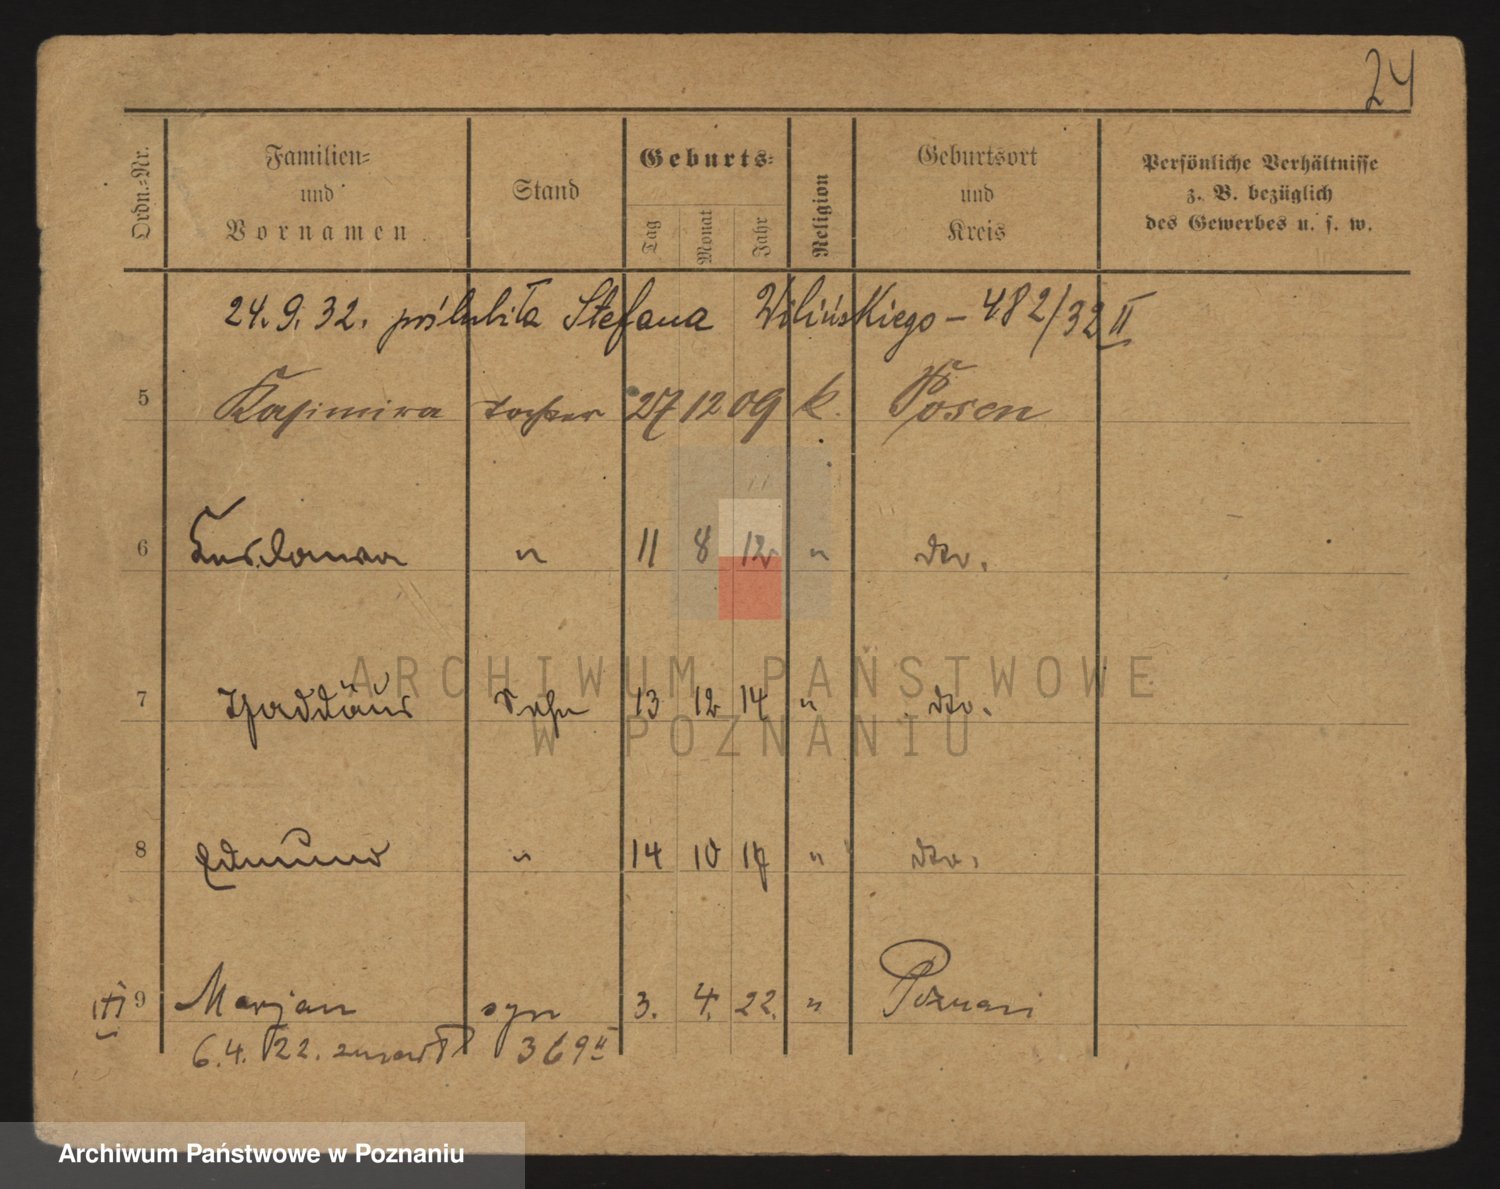 24
Ordn.=Nr.
Familien=
und
Vornamen
Stand
Geburts=
Tag
Monat
Jahr
Religion
Geburtsort
und
Kreis
Persönliche Verhältnisse
z. B. bezüglich
des Gewerbes u. s. w.
24. 9. 32. poślubiła Stefana Wilińskiego – 482/32 II
5 Kasimira Tochter 27 12 09 k. Posen
6 " 11 8 12 " dto.
7 Thaddäus Sohn 13 12 14 " dto.
8 Edmund " 14 10 17 " dto.
9 Marjan syn 3. 4. 22. " Poznań
6. 4. 22. zmarł 369 II
ARCHIWUM PAŃSTWOWE
W POZNANIU
Archiwum Państwowe w Poznaniu